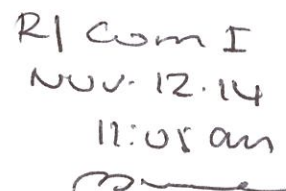 R/ Com I
Nov. 12.14
11:05 am